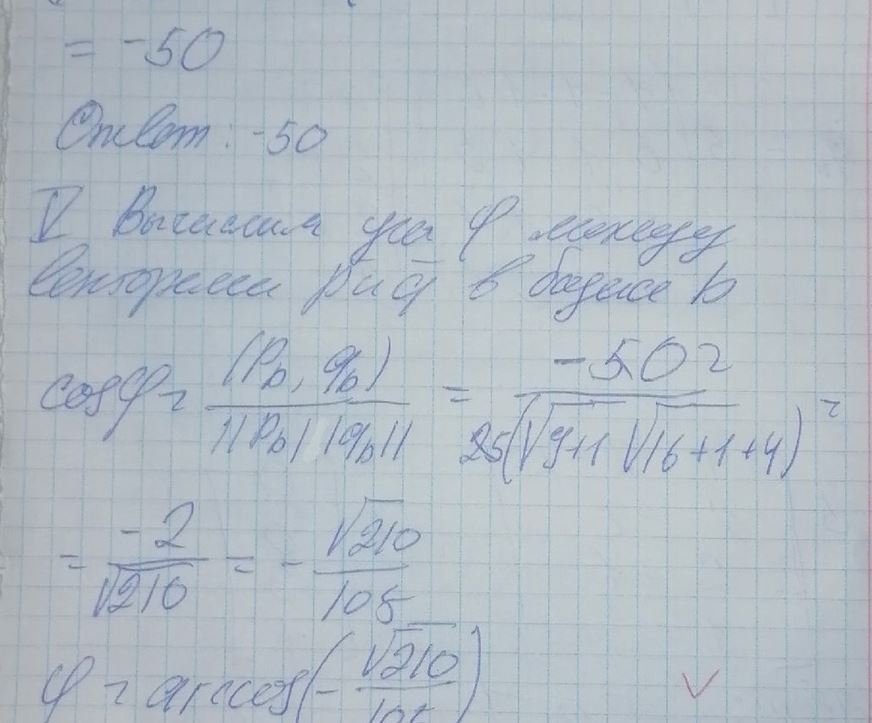 = -50
Ответ: -50
V Вычислим угл φ между
векторами p̄ и q̄ в базисе b
cosφ = (P_b, q_b) / ||P_b| |q_b|| = -50 / 25(√9+1 √16+1+4) =
= -2 / √210 = - √210 / 105
φ = arccos(- √210 / 105)